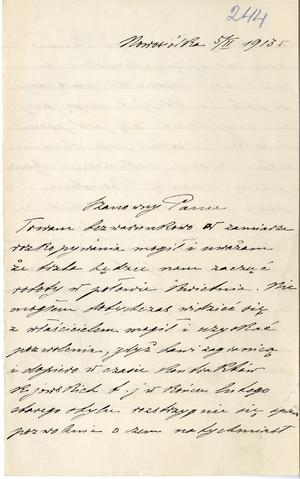 244
Nowosiółka 5/II 1913 r
Szanowny Panie
Towam bezwarunkowo w zamiarze
rozkopywania mogił i uważam
że trzeba będzie nam zacząć
roboty w połowie kwietnia. Nie
mogłem dotychczas widzieć się
z właścicielem mogił i uzyskać
pozwolenia, gdyż bawi zagranicą
i dopiero w czasie kontraktów
Kijowskich t. j w końcu lutego
starego stylu rozstrzygnie się
pozwolenie o czem natychmiast